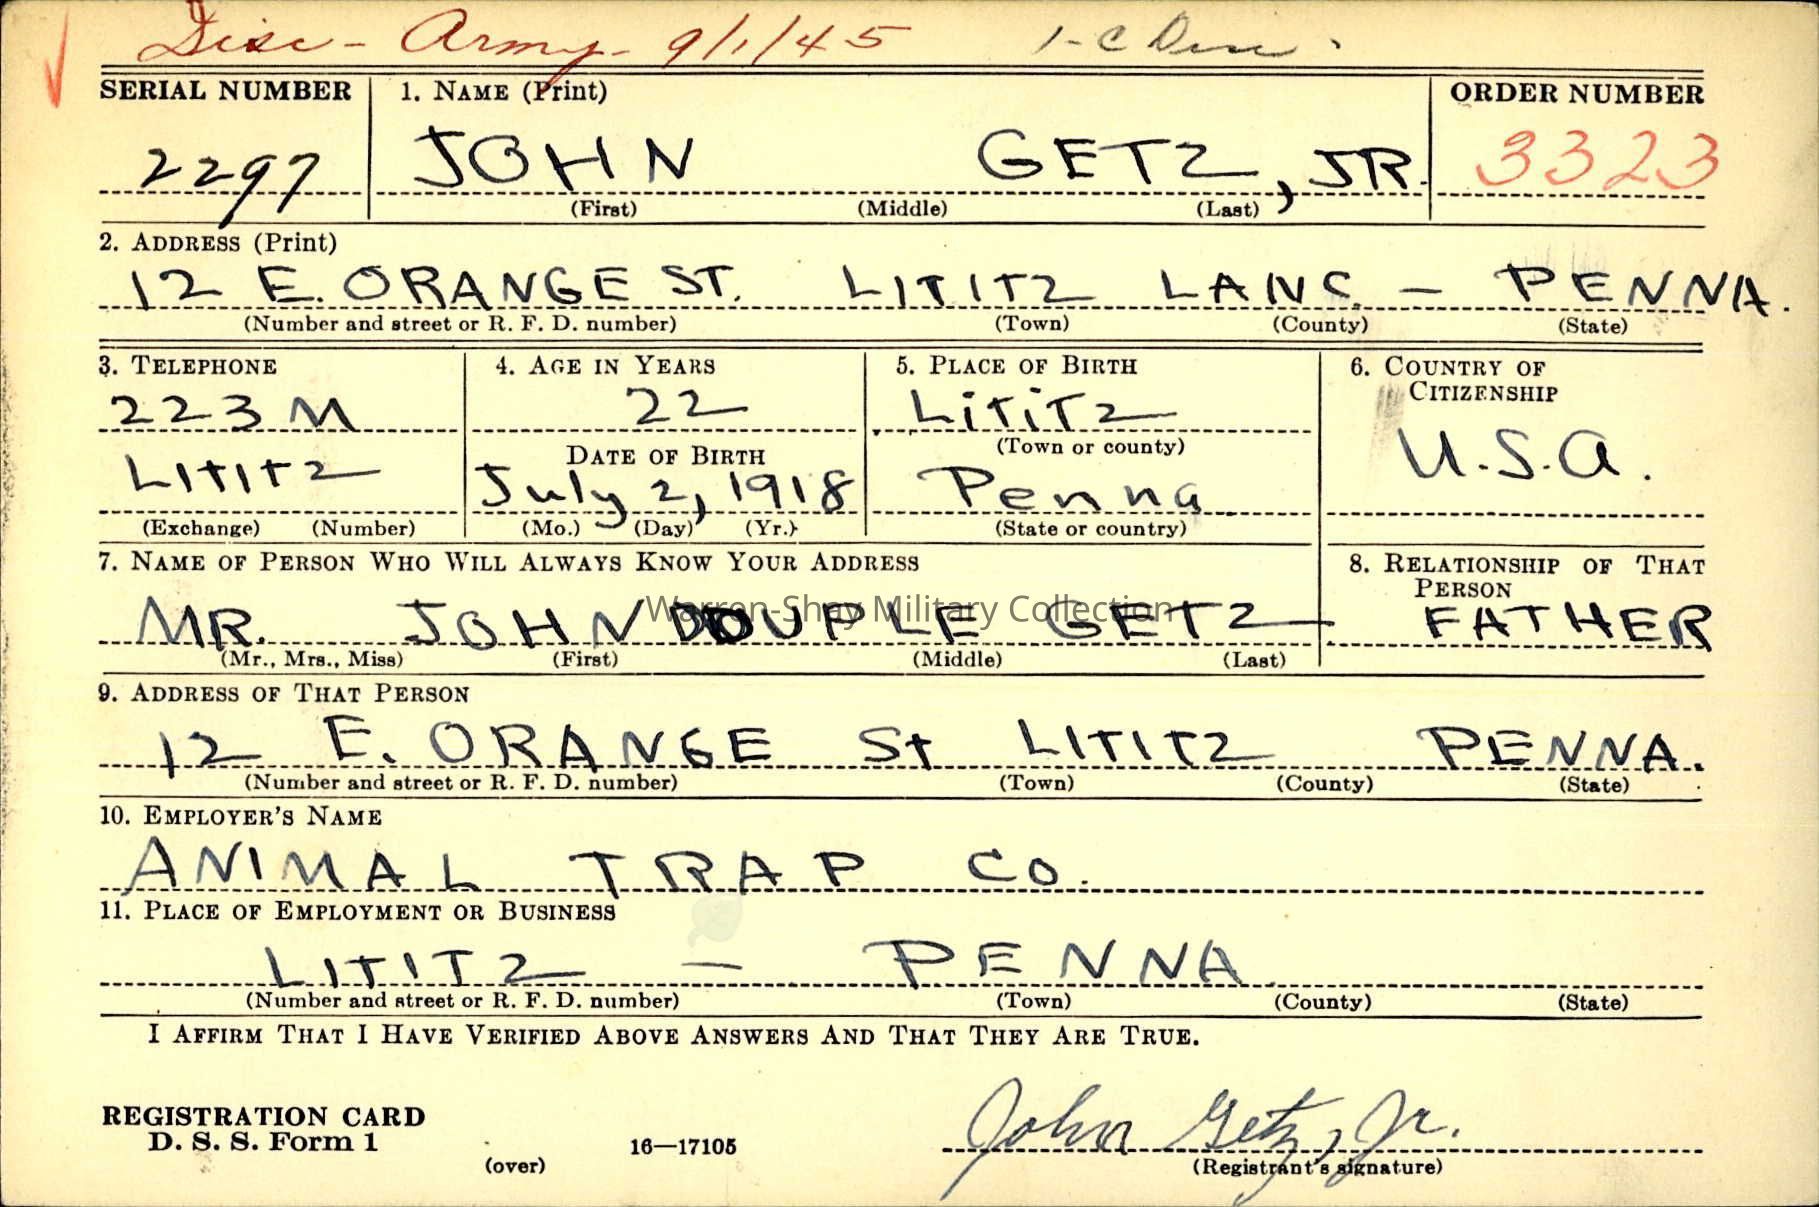 Disc - Army - 9/1/45 1-C Disc.
SERIAL NUMBER 1. NAME (Print) ORDER NUMBER
2297 JOHN GETZ, JR. 3323
(First) (Middle) (Last)
2. ADDRESS (Print)
12 E. ORANGE ST. LITITZ LANC. - PENNA.
(Number and street or R. F. D. number) (Town) (County) (State)
3. TELEPHONE 4. AGE IN YEARS 5. PLACE OF BIRTH 6. COUNTRY OF
CITIZENSHIP
223 M 22 LiTiTz
DATE OF BIRTH (Town or county) U.S.A.
LITITZ July 2, 1918 Penna
(Exchange) (Number) (Mo.) (Day) (Yr.) (State or country)
7. NAME OF PERSON WHO WILL ALWAYS KNOW YOUR ADDRESS 8. RELATIONSHIP OF THAT
PERSON
MR. JOHN GETZ FATHER
Warren-Shay Military Collection
(Mr., Mrs., Miss) (First) (Middle) (Last)
9. ADDRESS OF THAT PERSON
12 E. ORANGE St LITITZ PENNA.
(Number and street or R. F. D. number) (Town) (County) (State)
10. EMPLOYER'S NAME
ANIMAL TRAP CO.
11. PLACE OF EMPLOYMENT OR BUSINESS
LITITZ - PENNA.
(Number and street or R. F. D. number) (Town) (County) (State)
I AFFIRM THAT I HAVE VERIFIED ABOVE ANSWERS AND THAT THEY ARE TRUE.
REGISTRATION CARD John Getz, Jr.
D. S. S. Form 1 16—17105
(over) (Registrant's signature)